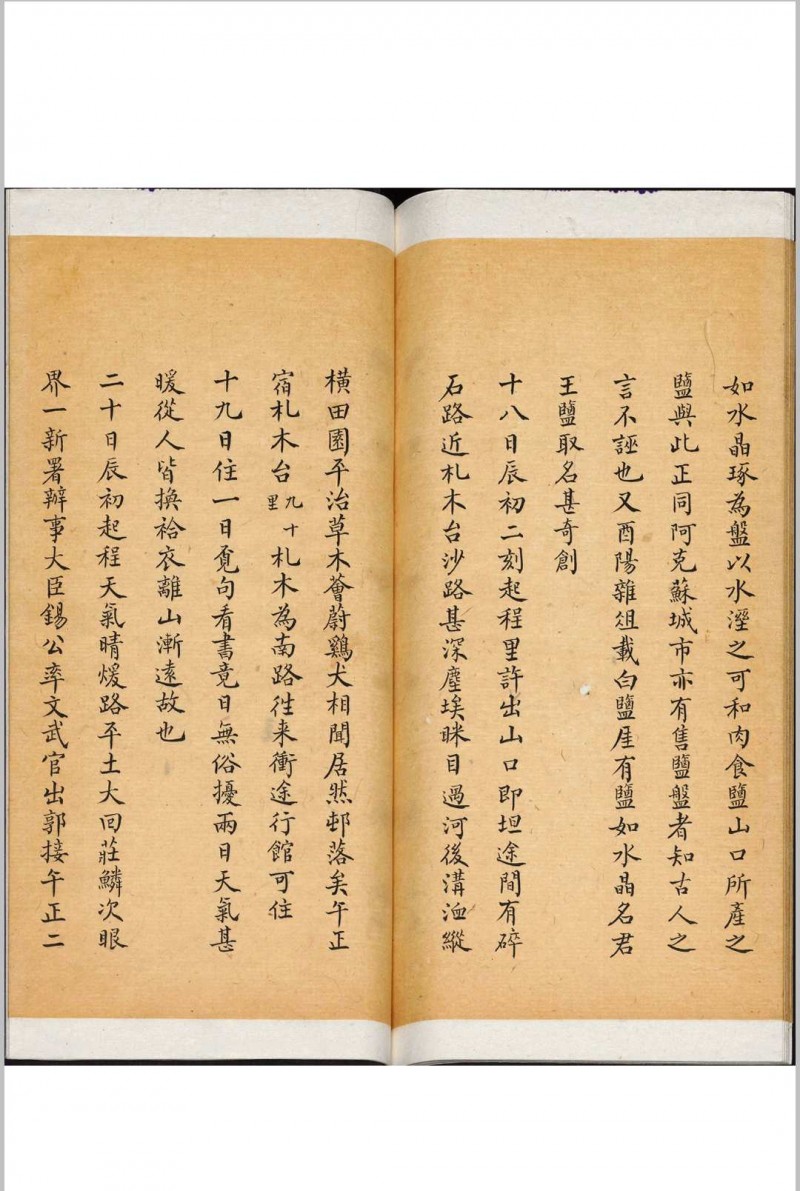 如水晶琢為盤以水溼之可和肉食鹽山口所產之
鹽與此正同阿克蘇城市亦有售鹽盤者知古人之
言不誣也又酉陽雜俎載白鹽厓有鹽如水晶名君
王鹽取名甚奇創
十八日辰初二刻起程里許出山口即坦途間有碎
石路近札木台沙路甚深塵埃眯目過河後溝洫縱
橫田園平治草木薈蔚鷄犬相聞居然邨落矣午正
宿札木台九十里札木為南路徃来衝途行館可住
十九日住一日覓句看書竟日無俗擾兩日天氣甚
暖從人皆換袷衣離山漸遠故也
二十日辰初起程天氣晴煖路平土大回莊鱗次眼
界一新署辦事大臣錫公率文武官出郭接午正二